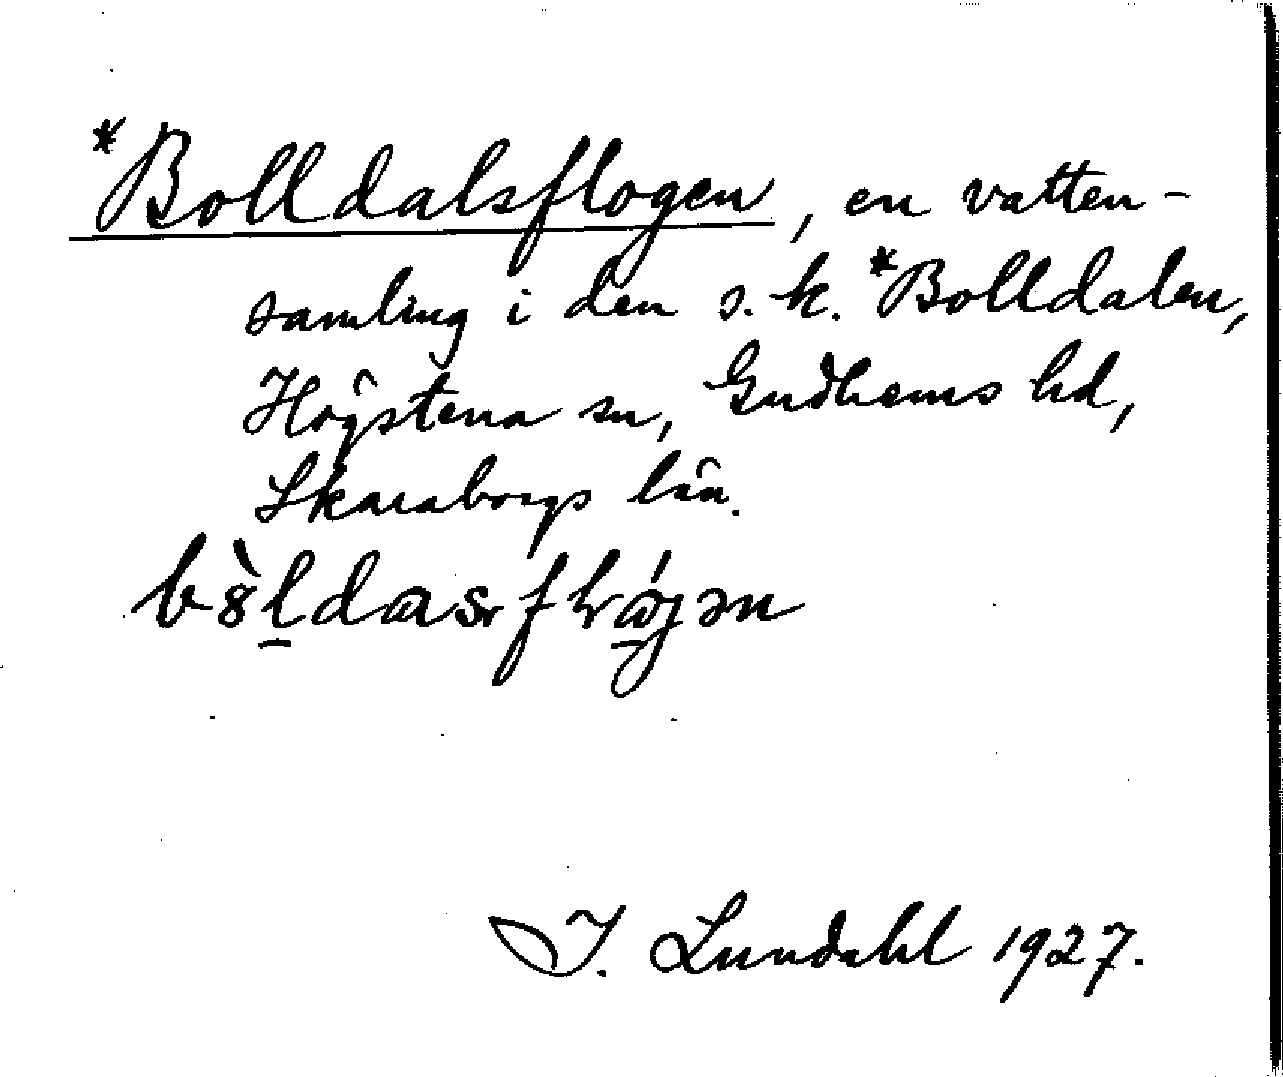 *Bolldalsflogen, en vatten-
samling i den s.k. *Bolldalen,
Högstena sn, Gudhems hd,
Skaraborgs län.
I. Lundahl 1927.